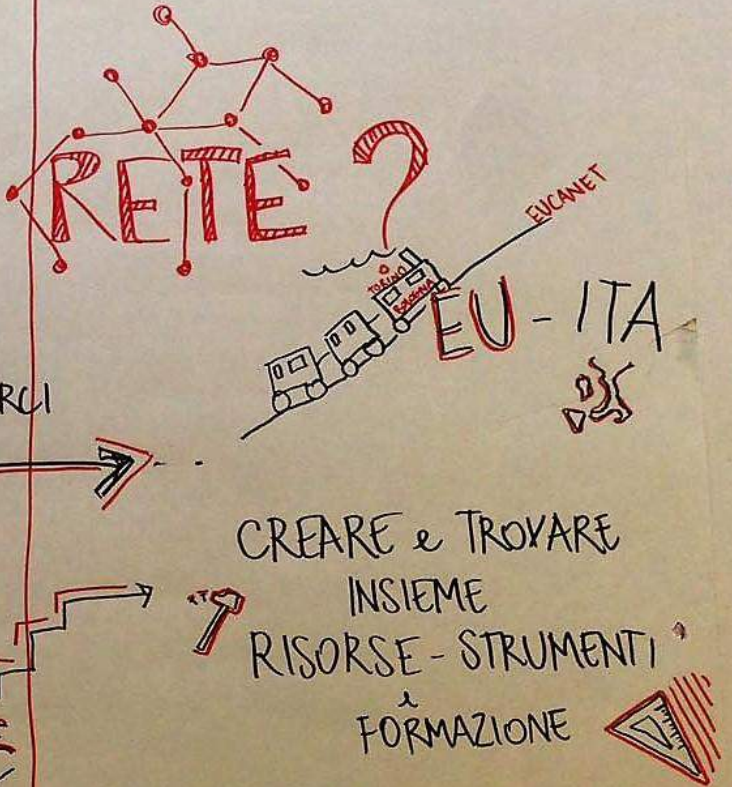 RETE?
EUCANET
TORINO
BOLOGNA
EU-ITA
RCI
CREARE e TROVARE
INSIEME
RISORSE-STRUMENTI
e
FORMAZIONE